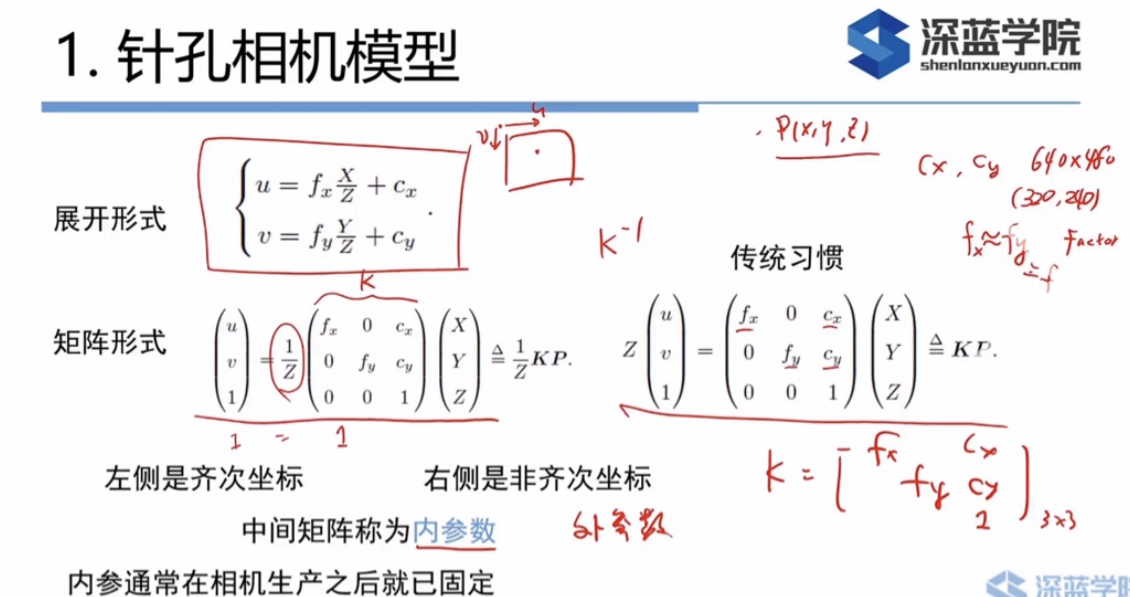 1. 针孔相机模型
深蓝学院
shenlanxueyuan.com
u
v
P(X,Y,Z)
Cx, Cy 640x480
(320,240)
fx≈fy Factor
=f
展开形式
u = f_x X/Z + c_x
v = f_y Y/Z + c_y
K^-1
传统习惯
K
矩阵形式
(u v 1) = 1/Z (f_x 0 c_x; 0 f_y c_y; 0 0 1) (X Y Z) ≜ 1/Z KP.
Z (u v 1) = (f_x 0 c_x; 0 f_y c_y; 0 0 1) (X Y Z) ≜ KP.
1 = 1
K = [fx Cx; fy Cy; 1] 3x3
左侧是齐次坐标
右侧是非齐次坐标
中间矩阵称为内参数
外参数
内参通常在相机生产之后就已固定
深蓝学院